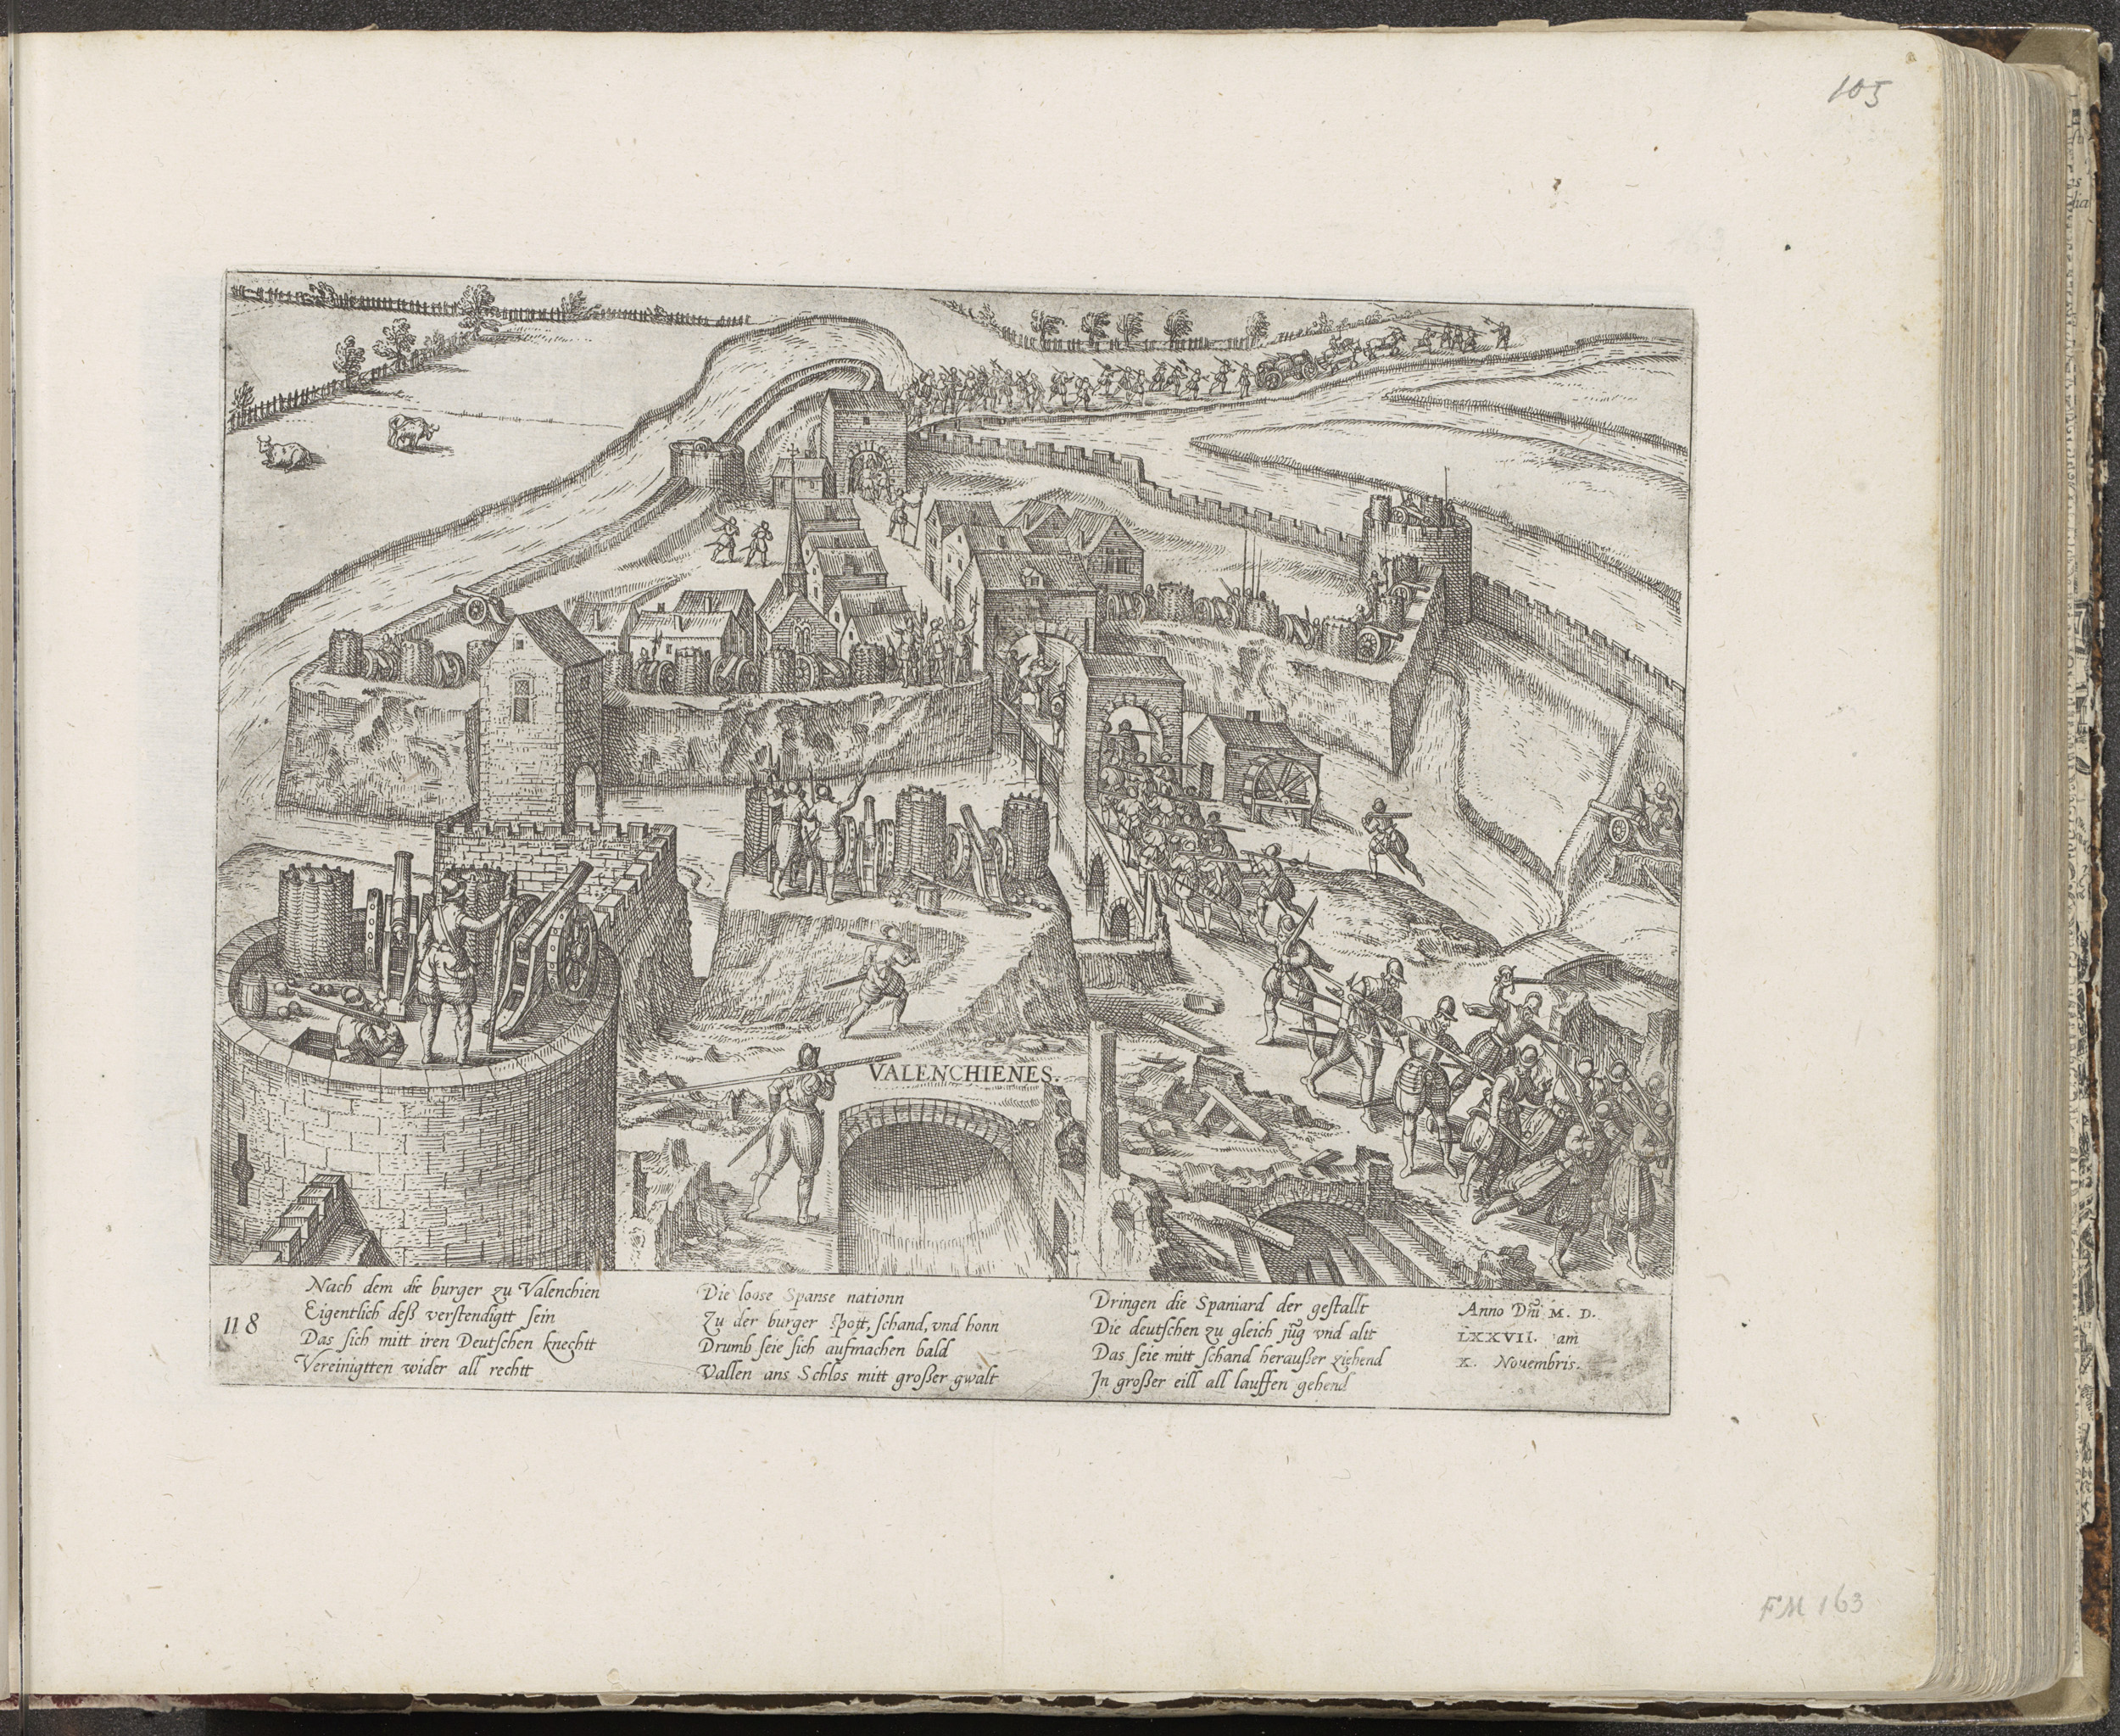 105
VALENCHIENES.
118
Nach dem die burger zu Valenchien
Eigentlich deß verstendigtt sein
Das sich mitt iren Deutschen knechtt
Vereinigtten wider all rechtt
Die loose Spanse nationn
Zu der burger spott, schand, vnd honn
Drumb seie sich aufmachen bald
Vallen ans Schlos mitt großer gwalt
Dringen die Spaniard der gestallt
Die deutschen zu gleich jūg vnd altt
Das seie mitt schand heraußer ziehend
In großer eill all lauffen gehend
Anno Dn̄i M. D.
LXXVII. am
X. Nouembris.
FM 163